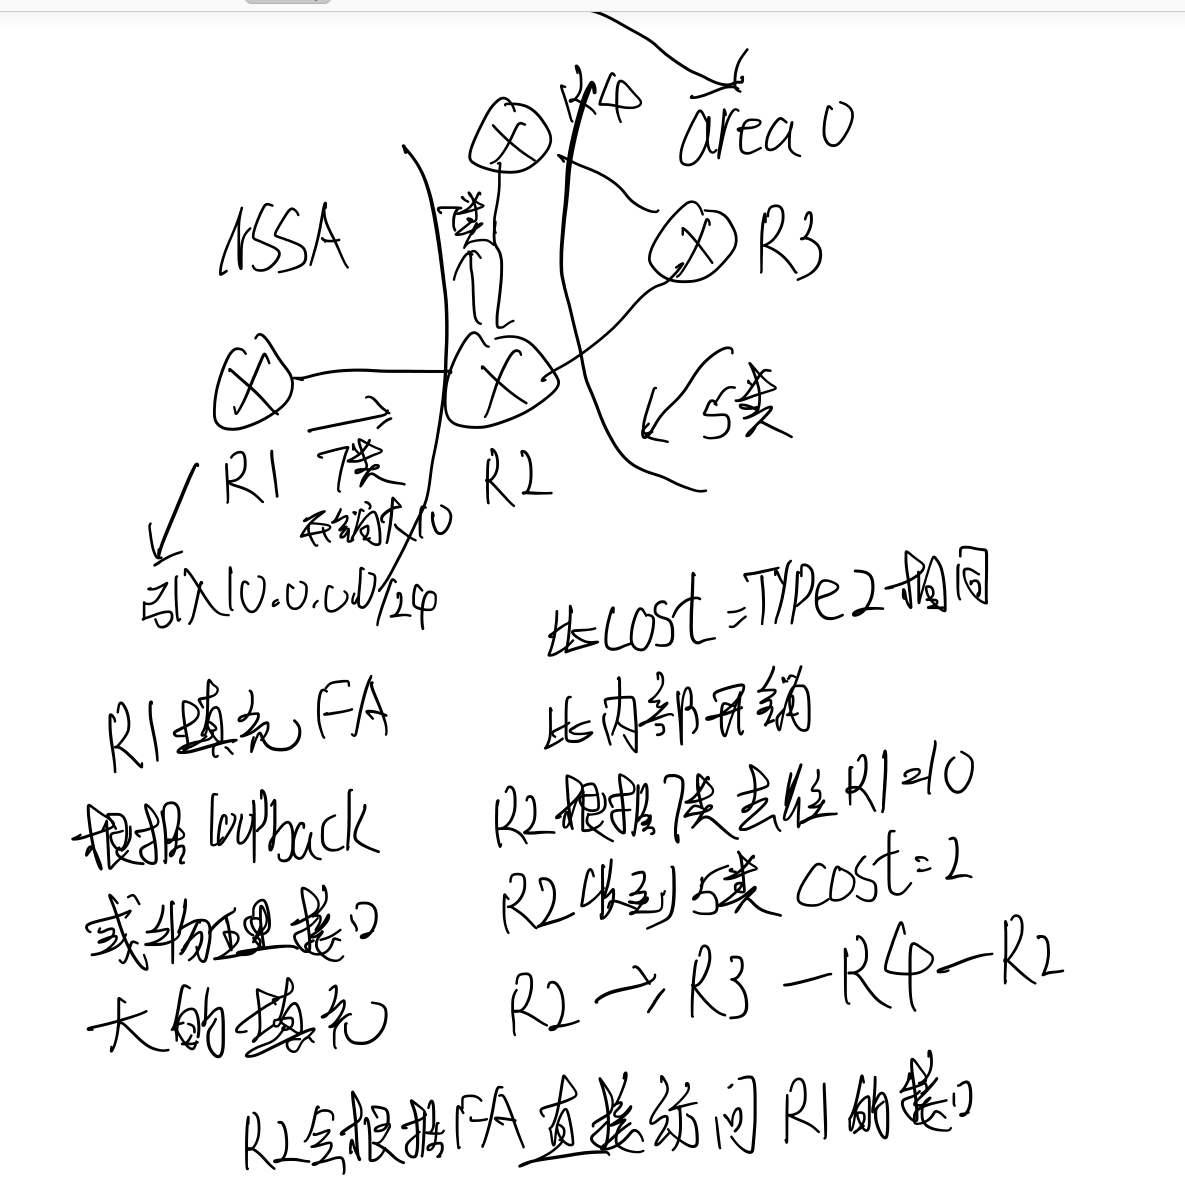 R4
area 0
NSSA
7类
R3
5类
R1
7类
R2
开销大10
引入10.0.0.0/24
比cost=TYPe2相同
R1填充FA
比内部开销
根据loopback
R2根据7类去往R1=10
或物理接口
R2收到5类 cost=2
大的填充
R2→R3—R4—R2
R2会根据FA直接访问R1的接口